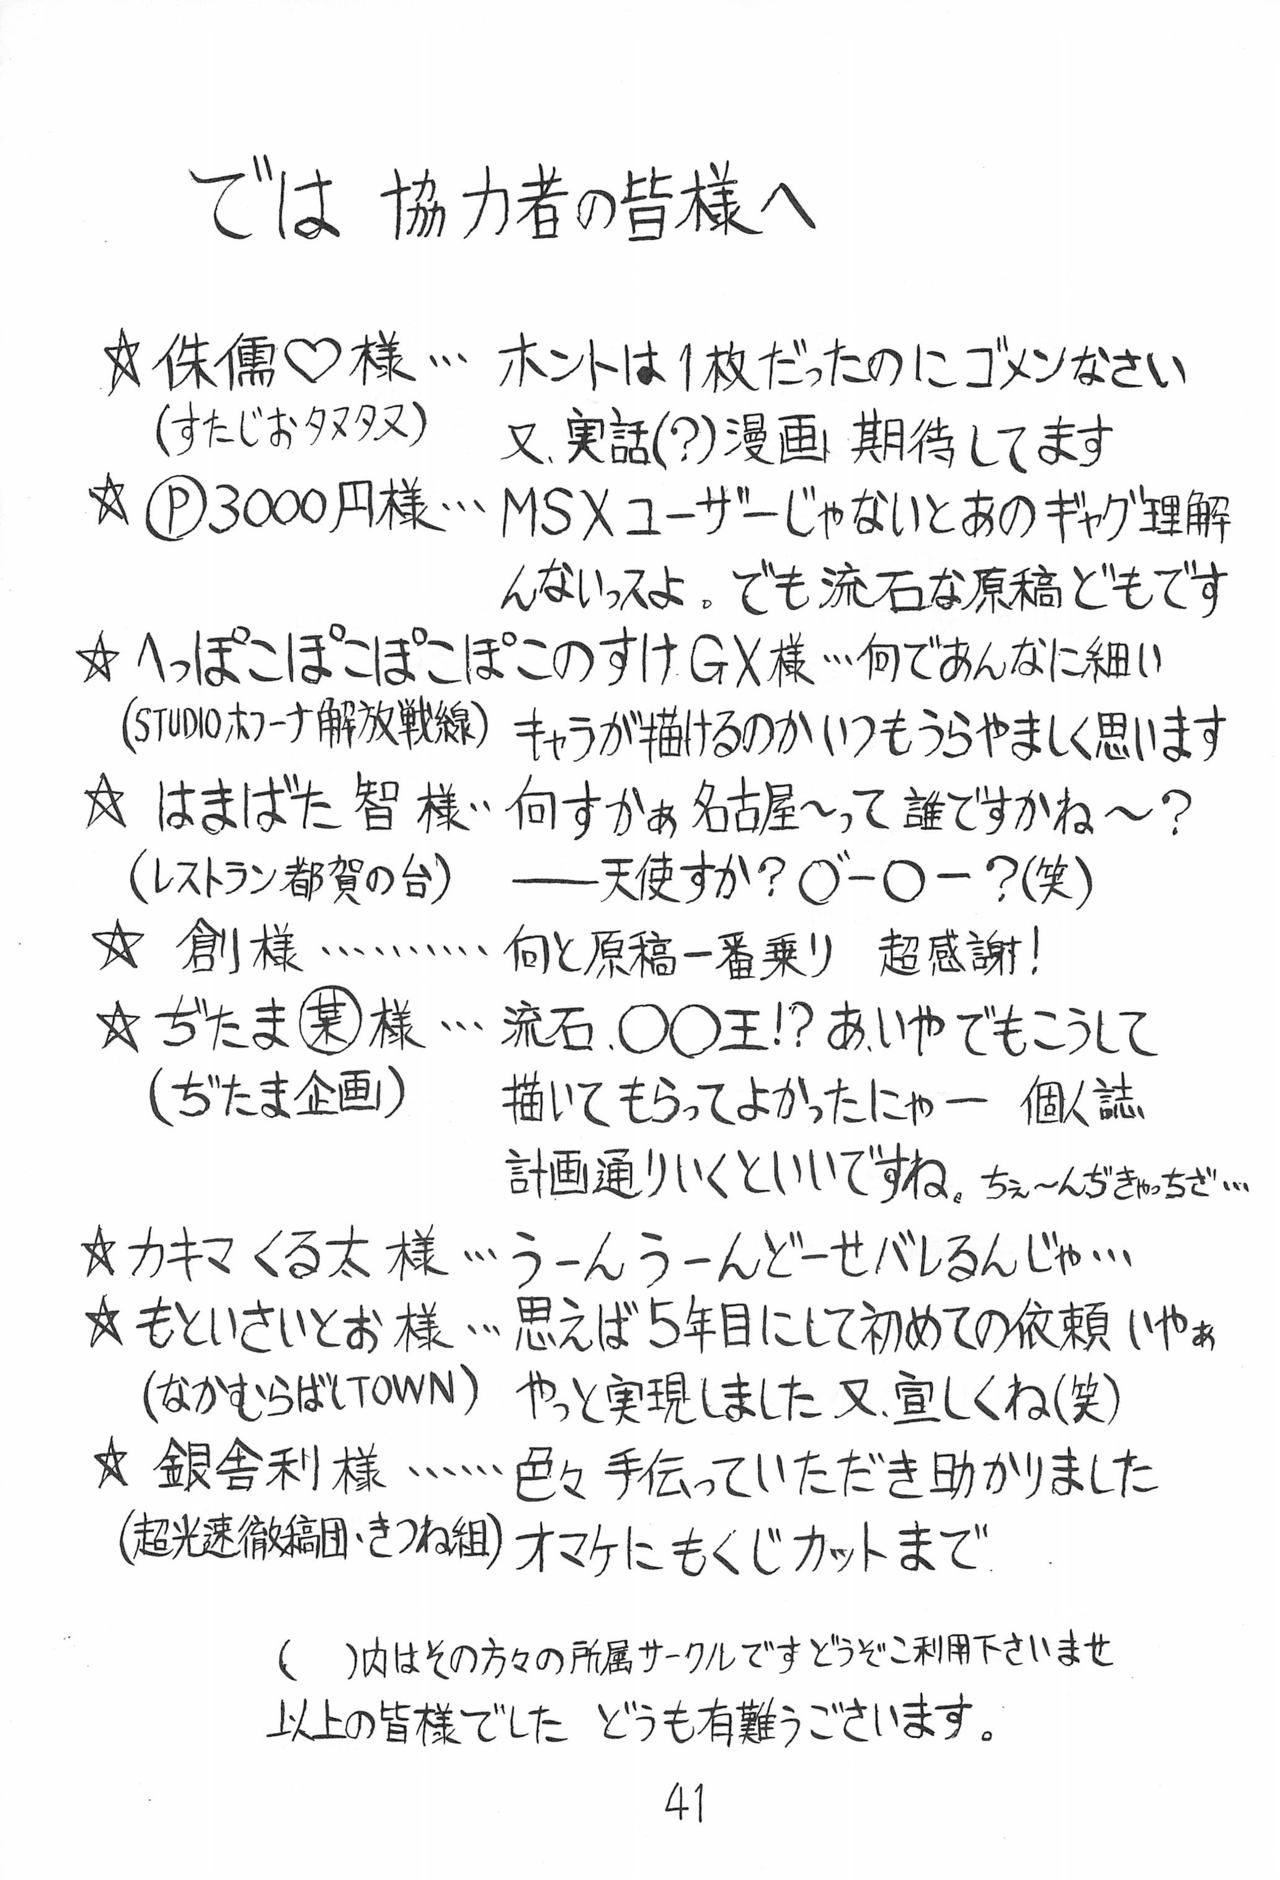 では 協力者の皆様へ
☆侏儒♡様… ホントは1枚だったのにゴメンなさい
(すたじおタヌタヌ) 又、実話(?)漫画 期待してます
☆Ⓟ3000円様… MSXユーザーじゃないとあのギャグ理解
んないっスよ。でも流石な原稿どもです
☆へっぽこぽこぽこぽこのすけGX様…何であんなに細い
(STUDIOホフーナ解放戦線) キャラが描けるのかいつもうらやましく思います
☆はまばた 智 様‥何すかぁ名古屋〜って誰ですかね〜?
(レストラン都賀の台) ――天使すか?○゛ー○ー?(笑)
☆創様………… 何と原稿一番乗り 超感謝!
☆ぢたま㊤様… 流石、○○王!?あ、いやでもこうして
(ぢたま企画) 描いてもらってよかったにゃー 個人誌
計画通りいくといいですね。ちぇ〜んぢきゃっちざ…
☆カキマくる太 様…うーんうーんどーせバレるんじゃ…
☆もといさいとお 様…思えば5年目にして初めての依頼 いやぁ
(なかむらばしTOWN) やっと実現しました 又、宣しくね(笑)
☆銀舎利様……色々手伝っていただき助かりました
(超光速徹稿団・きつね組) オマケにもくじカットまで
( )内はその方々の所属サークルですどうぞご利用下さいませ
以上の皆様でした どうも有難うございます。
41